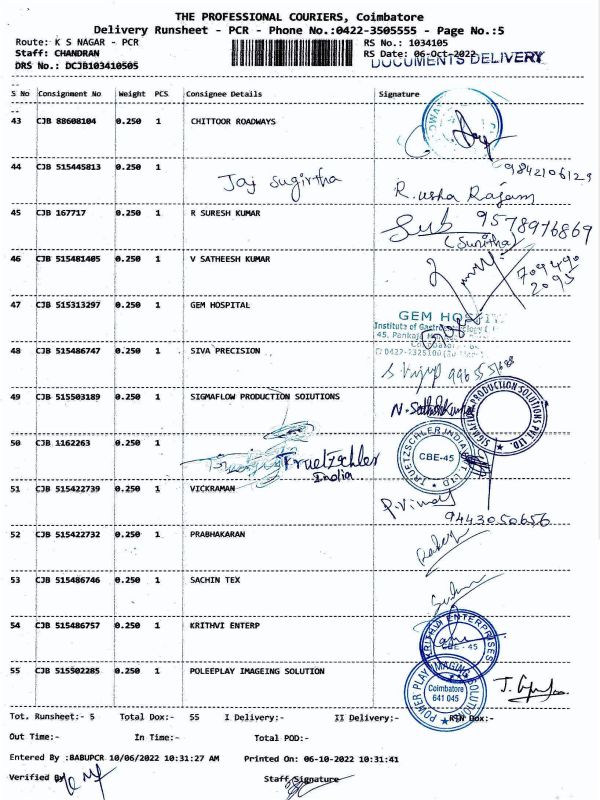 THE PROFESSIONAL COURIERS, Coimbatore
Delivery Runsheet - PCR - Phone No.:0422-3505555 - Page No.:5
Route: K S NAGAR - PCR RS No.: 1034105
Staff: CHANDRAN RS Date: 06-Oct-2022
DRS No.: DCJB103410505 DOCUMENTS DELIVERY
S No Consignment No Weight PCS Consignee Details Signature
43 CJB 88608104 0.250 1 CHITTOOR ROADWAYS
44 CJB 515445813 0.250 1 Jaj Sugirtha R. usha Rajam 9842106129
45 CJB 167717 0.250 1 R SURESH KUMAR Sub 9578976869
(Sunitha)
46 CJB 515481405 0.250 1 V SATHEESH KUMAR 709490
2095
47 CJB 515313297 0.250 1 GEM HOSPITAL
GEM HOSPITAL
Institute of
45, Pankaja
48 CJB 515486747 0.250 1 SIVA PRECISION
49 CJB 515503189 0.250 1 SIGMAFLOW PRODUCTION SOIUTIONS N. Sathishkumar
SIGMAFLOW PRODUCTION SOLUTIONS PVT. LTD.
50 CJB 1162263 0.250 1 Truetzschler
India
TRUETZSCHLER INDIA PVT LTD
CBE-45
51 CJB 515422739 0.250 1 VICKRAMAN P. Vimal
9443050656
52 CJB 515422732 0.250 1 PRABHAKARAN
53 CJB 515486746 0.250 1 SACHIN TEX
54 CJB 515486757 0.250 1 KRITHVI ENTERP
KRITHVI ENTERPRISES
CBE - 45
55 CJB 515502285 0.250 1 POLEEPLAY IMAGEING SOLUTION
POWER PLAY IMAGING SOLUTION
Coimbatore
641 045
Tot. Runsheet:- 5 Total Dox:- 55 I Delivery:- II Delivery:- RTN Dox:-
Out Time:- In Time:- Total POD:-
Entered By :BABUPCR 10/06/2022 10:31:27 AM Printed On: 06-10-2022 10:31:41
Verified By Staff Signature